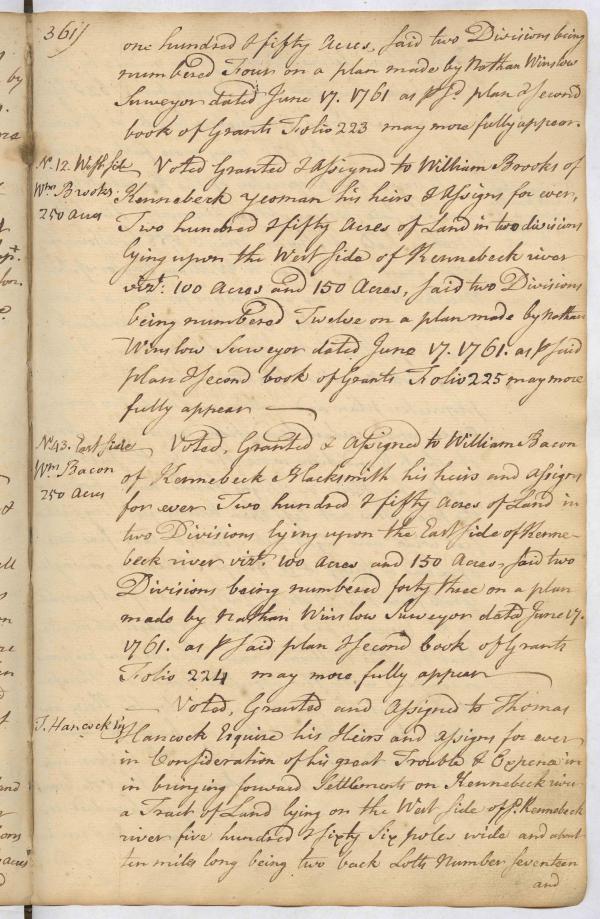 361
one hundred & fifty Acres, said two Divisions being
numbered Four on a plan made by Nathan Winslow
Surveyor dated June 17. 1761 as p sd. plan & second
book of Grants Folio 223 may more fully appear.
No. 12. West side
Wm Brooks
250 acres
Voted Granted & Assigned to William Brooks of
Kennebeck yeoman his heirs & Assigns for ever,
Two hundred & fifty Acres of Land in two divisions
lying upon the West side of Kennebeck river
vizt: 100 Acres and 150 Acres, said two Divisions
being numbered Twelve on a plan made by Nathan
Winslow Surveyor dated June 17. 1761. as p said
plan & second book of Grants Folio 225 may more
fully appear
No. 43. East side
Wm Bacon
250 Acres
Voted, Granted & Assigned to William Bacon
of Kennebeck Blacksmith his heirs and assigns
for ever Two hundred & fifty Acres of Land in
two Divisions lying upon the East side of Kenne-
beck river vizt. 100 Acres and 150 Acres, said two
Divisions being numbered forty three on a plan
made by Nathan Winslow Surveyor dated June 17.
1761. as p said plan & second book of Grants
Folio 224 may more fully appear
T. Hancock Esq
Voted, Granted and Assigned to Thomas
Hancock Esquire his Heirs and assigns for ever
in Consideration of his great Trouble & Expence in
in bringing forward Settlements on Kennebeck river
a Tract of Land lying on the West side of sd. Kennebeck
river five hundred & sixty six poles wide and about
ten miles long being two back Lotts Number seventeen
and